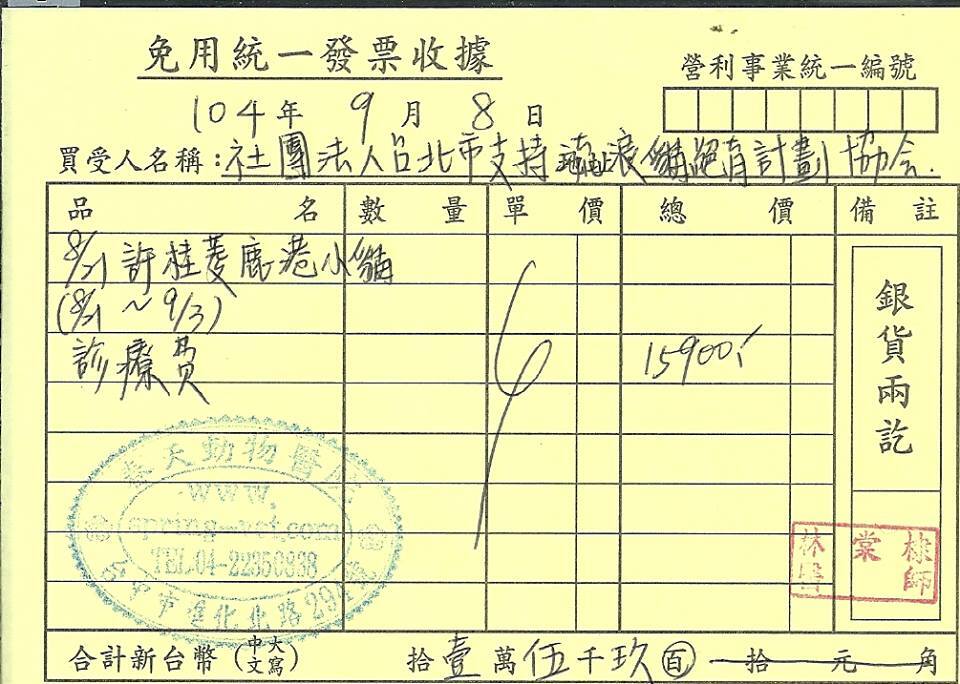 免用統一發票收據
營利事業統一編號
104年 9月 8日
買受人名稱:社團法人台北市支持流浪貓絕育計劃協會.
品名 數量 單價 總價 備註
8/21 許桂菱鹿港小貓
(8/21 ~ 9/3)
診療費 15900
銀貨兩訖
春天動物醫院
www.
spring-vet.com
TEL.04-22350838
台中市進化北路294號
林 棠 棣
醫 師
合計新台幣(中文大寫) 拾壹萬伍千玖百 拾 元 角